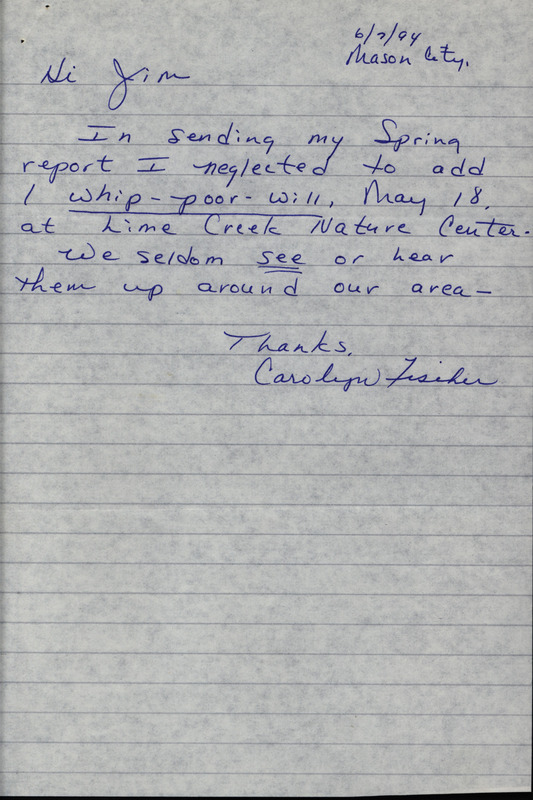 6/7/94
Mason City.
Hi Jim
In sending my Spring
report I neglected to add
1 whip-poor-will, May 18,
at Lime Creek Nature Center.
We seldom see or hear
them up around our area—
Thanks,
Carolyn Fischer